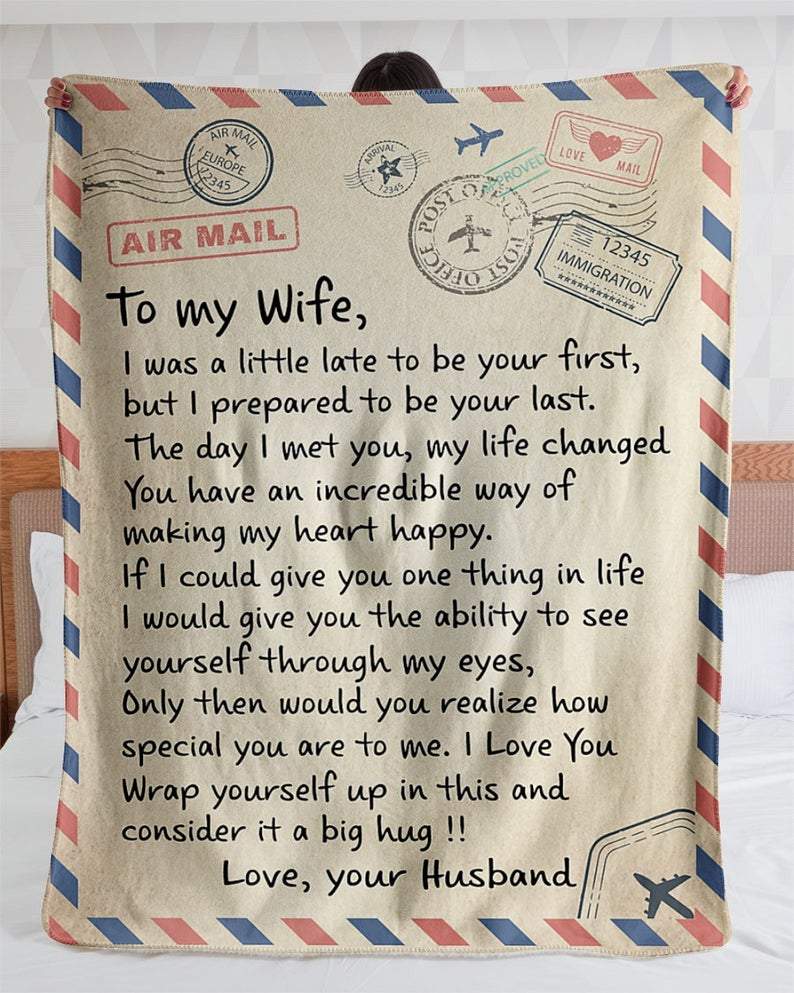 AIR MAIL
EUROPE
12345
ARRIVAL
12345
APPROVED
LOVE MAIL
POST OFFICE
POST OFFICE
12345
IMMIGRATION
************
AIR MAIL
To my Wife,
I was a little late to be your first,
but I prepared to be your last.
The day I met you, my life changed
You have an incredible way of
making my heart happy.
If I could give you one thing in life
I would give you the ability to see
yourself through my eyes,
Only then would you realize how
special you are to me. I Love You
Wrap yourself up in this and
consider it a big hug !!
Love, your Husband